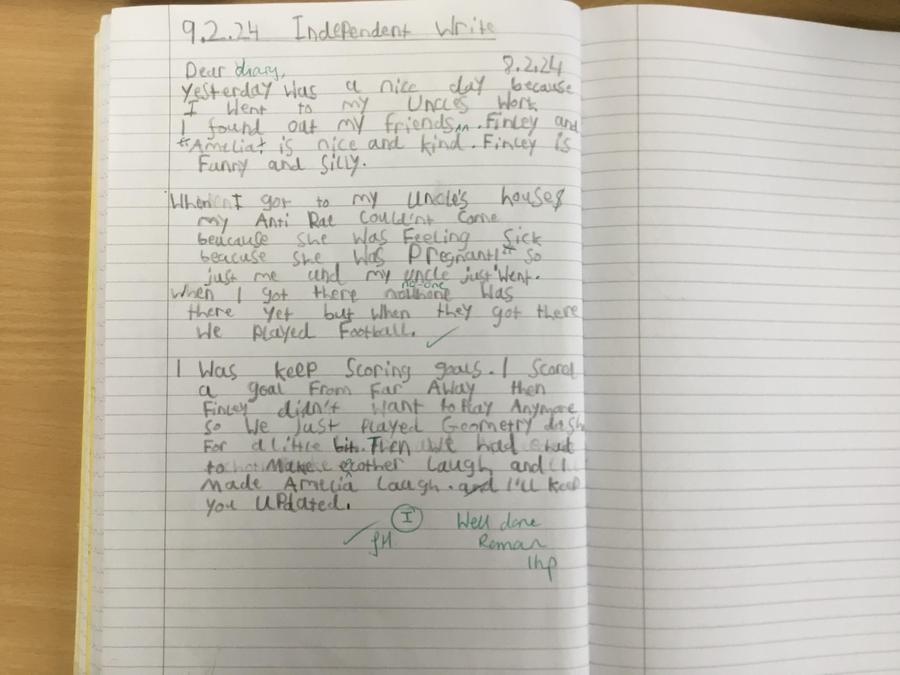 9.2.24 Independent Write
Dear diary, 8.2.24
Yesterday was a nice day because
I went to my Uncles work
I found out my friends. Finley and
*Amelia* is nice and kind. Finley is
Funny and silly.
When I got to my Uncle's house
my Anti Rae Couldn't Come
beacause she was Feeling Sick
beacuse she was Pregnant!* so
just me and my uncle just went.
When I got there no-one was
there yet but when they got there
we played Football.
I was keep Scoring goals. I Scored
a goal From Far Away then
Finley didn't want to Play Anymore
So we Just Played Geometry dash
For a little bit. Then we had
to Make other laugh and I
made Amelia laugh. and I'll keep
you updated.
I
JH
Well done
Roman
1hp